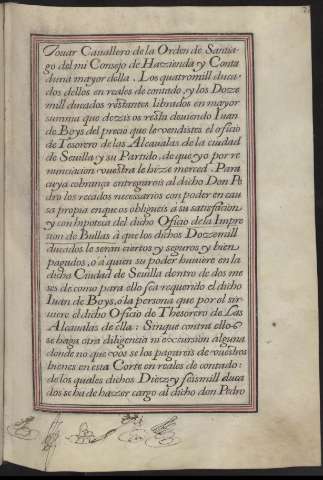 Touar Cauallero de la Orden de Santia-
go del mi Consejo de Hazienda y Conta
duria mayor della. Los quatro mill duca-
dos dellos en reales de contado, y los Doze
mill ducados restantes librados en mayor
summa que dezis os resta deuiendo Iuan
de Boys del precio que le vendistes el oficio
de Tesorero de las Alcaualas de la ciudad
de Seuilla y su Partido, de que yo por re
nunciacion vuestra le hize merced. Para
cuya cobrança entregareis al dicho Don Pe
dro los recados necessarios con poder en cau
sa propia en que os obligueis a su satisfacion
y con ipoteca del dicho Oficio de la Impre
sion de Bullas à que los dichos Doze mill
ducados le serán ciertos y seguros y bien
pagados, o à quien su poder huuiere en la
dicha Ciudad de Seuilla dentro de dos me
ses de como para ello sea requerido el dicho
Iuan de Boys, ò la persona que por el sir
uiere el dicho Oficio de Thesorero de Las
Alcaualas de ella: Sin que contra ellos
se haga otra diligencia ni excursion alguna
donde no que vos se los pagareis de vuestros
bienes en esta Corte en reales de contado:
de los quales dichos Diez y seis mill duca
dos se ha de hazer cargo al dicho don Pedro